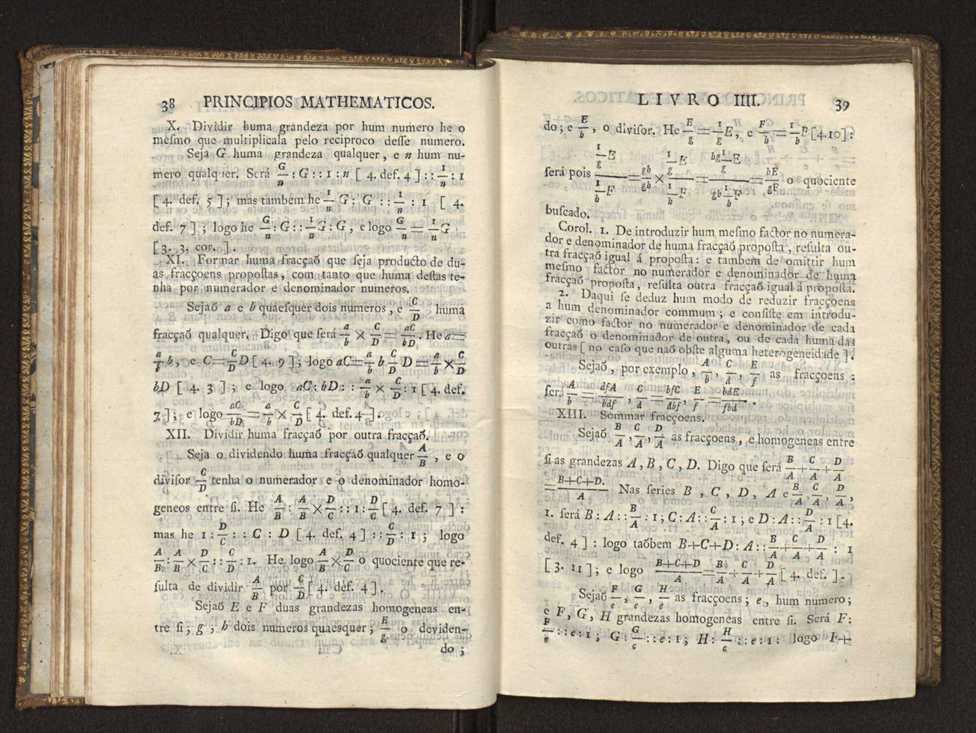 38 PRINCIPIOS MATHEMATICOS.
X. Dividir huma grandeza por hum numero he o
mesmo que multiplicala pelo reciproco desse numero.
Seja G huma grandeza qualquer, e n hum nu-
mero qualquer. Será G/n : G :: 1 : n [ 4. def. 4 ] :: 1/n : 1
[ 4. def. 5 ] ; mas tambem he 1/n G : G :: 1/n : 1 [ 4.
def. 7 ] ; logo he G/n : G :: 1/n G : G , e logo G/n = 1/n G
[ 3. 3. cor. ] .
XI. Formar huma fracçaõ que seja producto de du-
as fracçoens propostas , com tanto que huma destas te-
nha por numerador e denominador numeros.
Sejaõ a e b quaesquer dois numeros , e C/D huma
fracçaõ qualquer. Digo que será a/b × C/D = aC/bD. He a =
a/b b , e C = C/D D [ 4. 9 ] ; logo aC = a/b b C/D D = a/b × C/D
bD [ 4. 3 ] ; e logo aC : bD :: a/b × C/D : 1 [ 4. def.
7 ] ; e logo aC/bD = a/b × C/D [ 4. def. 4 ] .
XII. Dividir huma fracçaõ por outra fracçaõ.
Seja o dividendo huma fracçaõ qualquer A/B , e o
divisor C/D tenha o numerador e o denominador homo-
geneos entre si. He A/B : A/B × D/C :: 1 : D/C [ 4. def. 7 ] :
mas he 1 : D/C :: C : D [ 4. def. 4 ] :: C/D : 1 ; logo
A/B : A/B × D/C :: C/D : 1. He logo A/B × D/C o quociente que re-
sulta de dividir A/B por C/D [ 4. def. 4 ] .
Sejaõ E e F duas grandezas homogeneas en-
tre si ; g , b dois numeros quaesquer ; E/g o deviden-
do ;
LIVRO IIII. 39
do ; e F/b , o divisor. He E/g = 1/g E , e F/b = 1/b F [ 4. 10 ] :
será pois 1/g E / 1/b F = gb/gb × 1/g E / 1/b F = bg 1/g E / gb 1/b F = bE/gF o quociente
buscado.
Corol. 1. De introduzir hum mesmo factor no numera-
dor e denominador de huma fracçaõ proposta , resulta ou-
tra fracçaõ igual á proposta : e tambem de omittir hum
mesmo factor no numerador e denominador de huma
fracçaõ proposta , resulta outra fracçaõ igual á proposta.
2. Daqui se deduz hum modo de reduzir fracçoens
a hum denominador commum ; e consiste em introdu-
zir como factor no numerador e denominador de cada
fracçaõ o denominador de outra , ou de cada huma das
outras [ no caso que naõ obste alguma heterogeneidade ] .
Sejaõ , por exemplo , A/b , C/d , E/f as fracçoens :
será A/b = dfA/bdf , C/d = bfC/dbf , E/f = bdE/fbd .
XIII. Sommar fracçoens.
Sejaõ B/A , C/A , D/A as fracçoens , e homogeneas entre
si as grandezas A , B , C , D. Digo que será B/A + C/A + D/A
= B+C+D/A . Nas series B , C , D , A e B/A , C/A , D/A ,
1. será B : A :: B/A : 1 ; C : A :: C/A : 1 ; e D : A :: D/A : 1 [ 4.
def. 4 ] : logo taõbem B+C+D : A :: B/A + C/A + D/A : 1
[ 3. 11 ] ; e logo B+C+D/A = B/A + C/A + D/A [ 4. def. ] .
Sejaõ F/e , G/e , H/e as fracçoens ; e , hum numero ;
e F , G , H grandezas homogeneas entre si. Será F :
F/e :: e : 1 ; G : G/e :: e : 1 ; H : H/e :: e : 1 : logo F +